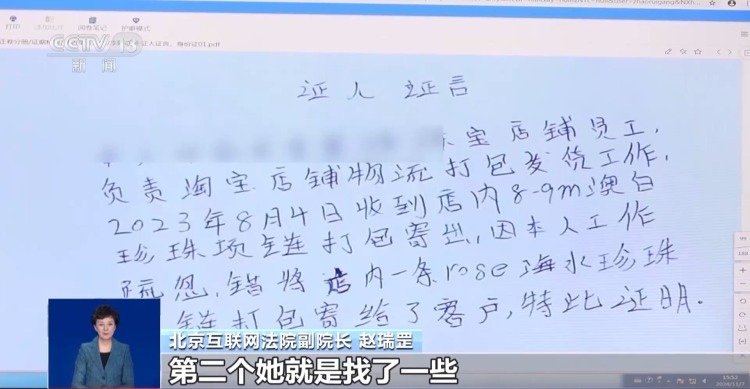 打印
阅读笔记
护眼模式
证人证言、身份证01.pdf
CCTV 13
新闻
证人证言
宝店铺员工,
负责淘宝店铺物流打包发货工作,
2023年8月4日收到店内8-9m澳白
珍珠项链打包寄出,因本人工作
疏忽,错将店内一条rose海水珍珠
链打包寄给了客户,特此证明.
北京互联网法院副院长 赵瑞罡
第二个她就是找了一些
15:52
2024/11/7